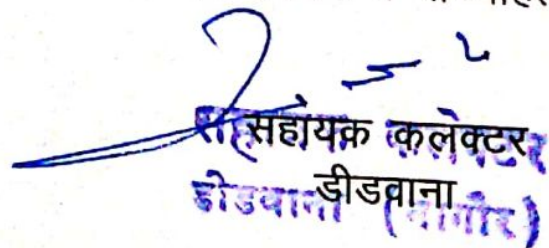 सहायक कलेक्टर
डीडवाना
डीडवाना (नागौर)